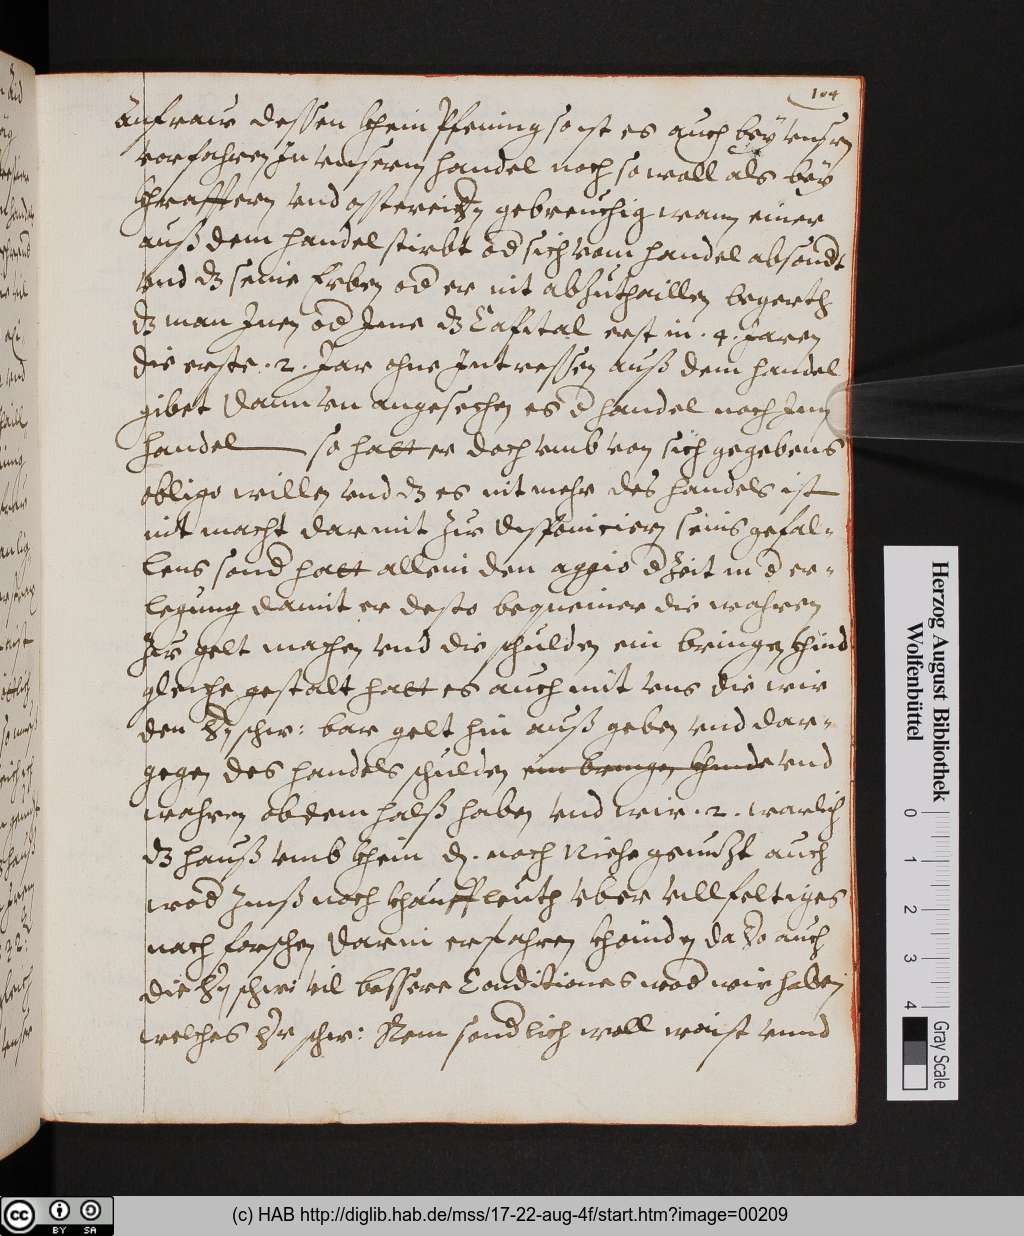 104
Anfraw dessen khein Pfening so ist es auch beÿ vnsern
vorfahren Jn vnserem handel noch so woll als beÿ
vnd gebreuchig wann einer
auß dem handel stirbt od sich vom handel absondt
vnd dz seine Erben od er nit abzuthaillen begerth
dz man Jnen od Jme dz Capital erst in . 4 . Jaren
die erste . 2 . Jar ohne Jntressen auß dem handel
gibet dann angesechen es d handel noch Jnn
handel so hatt er doch vmb von sich gegebens
obligo willen vnd dz es nit mehr des handels ist
nit macht darmit zu disponieren seins gefal-
lens sond hatt allein den aggio d Zeit in d er-
legung damit er desto bequemer die wahren
zu gelt machen vnd die schulden ein bringen khind
gleiche gestalt hatt es auch mit vns die wir
den hn schw: bar gelt hin auß geben vnd dar-
gegen des handels schulden ein bringen khinde vnd
wahren ob dem halß haben vnd wir . 2 . warlich
dz hauß vmb khein d. noch niehe auch
wed Zinß noch khauffleuth vber villfeltiges
nach forschen darin erfahren khöinden da so auch
die hn schw: vil bessere Conditiones wed wir haben
welches hr schw: sondlich woll waist vnnd
Herzog August Bibliothek
Wolfenbüttel
0 1 2 3 4
Gray Scale
cc BY SA
(c) HAB http://diglib.hab.de/mss/17-22-aug-4f/start.htm?image=00209